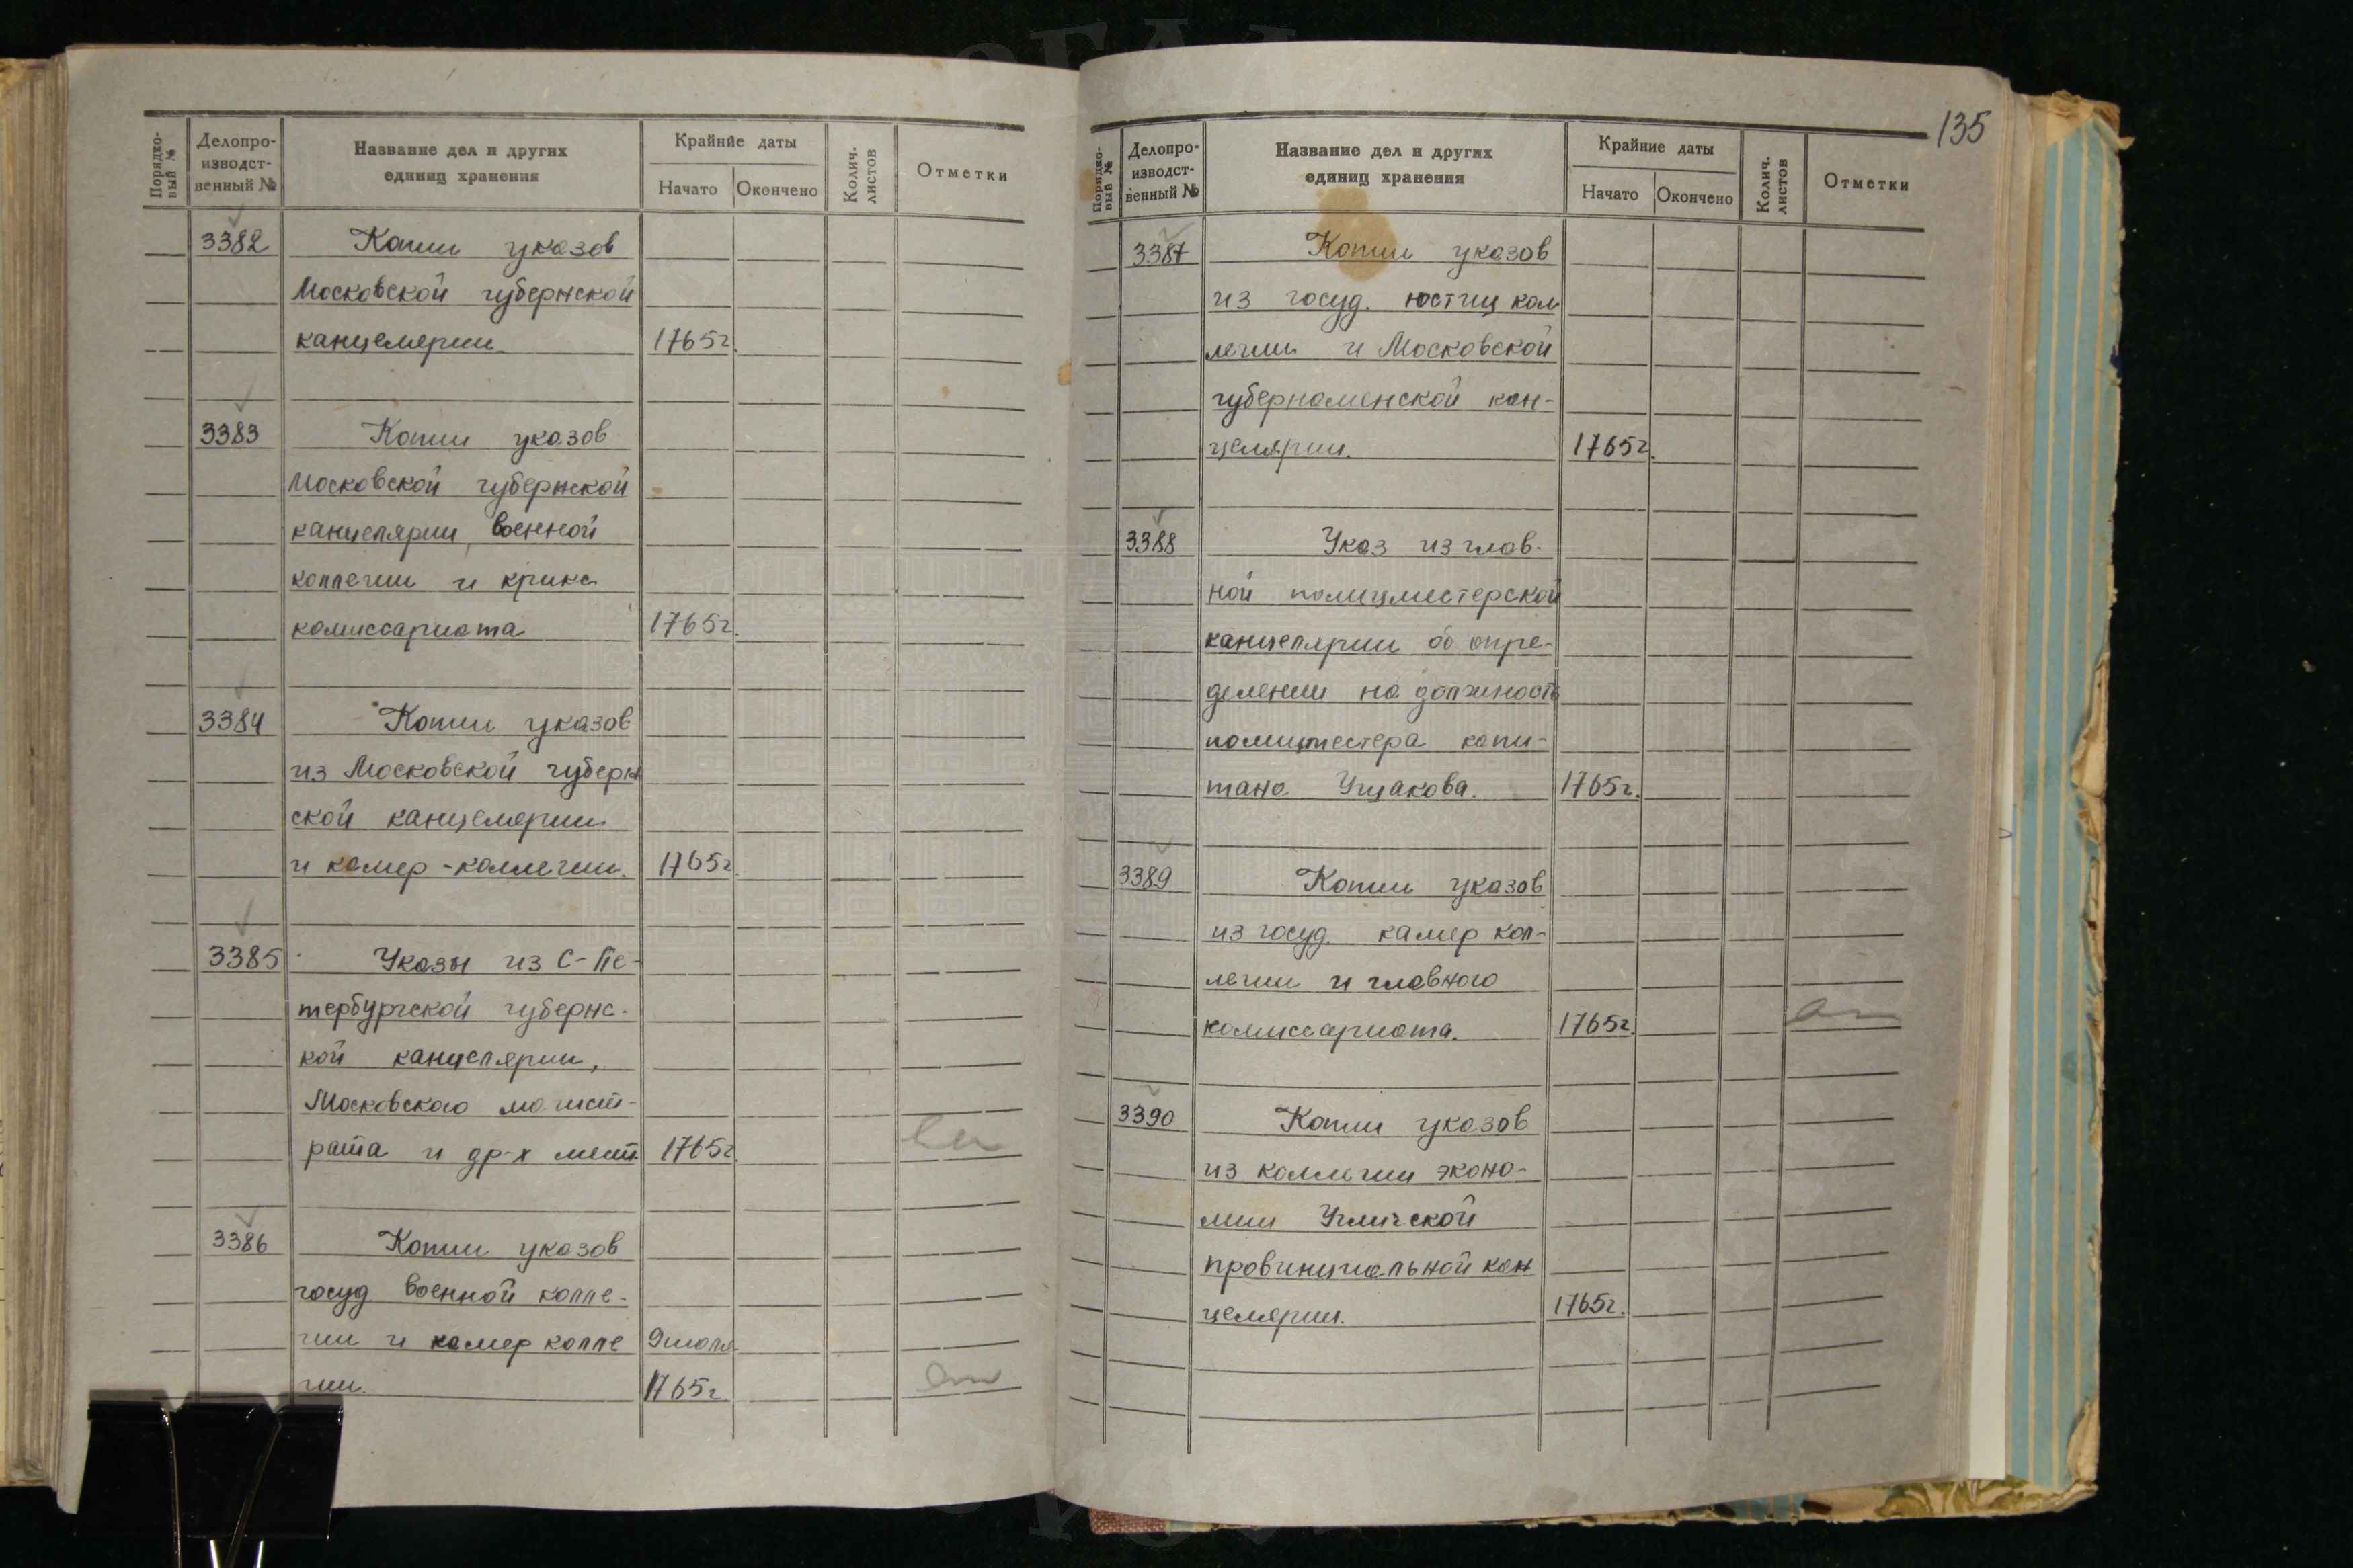 Порядко-
вый №
Делопро-
изводст-
венный №
Название дел и других
единиц хранения
Крайние даты
Начато
Окончено
Колич.
листов
Отметки
3382 Копии указов
Московской губернской
канцелярии 1765г.
3383 Копии указов
Московской губернской
канцелярии, военной
коллегии и крикс
комиссариата 1765г.
3384 Копии указов
из Московской губерн
ской канцелярии
и камер-коллегии. 1765г.
3385 Указы из С-Пе-
тербургской губернс-
кой канцелярии,
Московского магист-
рата и др-х мест. 1765г.
3386 Копии указов
госуд. военной колле-
гии и камер колле 9 июля
гии. 1765г
135
Порядко-
вый №
Делопро-
изводст-
венный №
Название дел и других
единиц хранения
Крайние даты
Начато
Окончено
Колич.
листов
Отметки
3387 Копии указов
из госуд. юстиц кол
легии и Московской
губернаменской кан-
целярии. 1765г.
3388 Указ из глав-
ной полицместерской
канцелярии об опре-
делении на должность
полицместера капи-
тана Ушакова. 1765г.
3389 Копии указов
из госуд. камер кол-
легии и главного
комиссариата. 1765г.
3390 Копии указов
из коллегии эконо-
мии Угличской
провинциальной кан
целярии. 1765г.